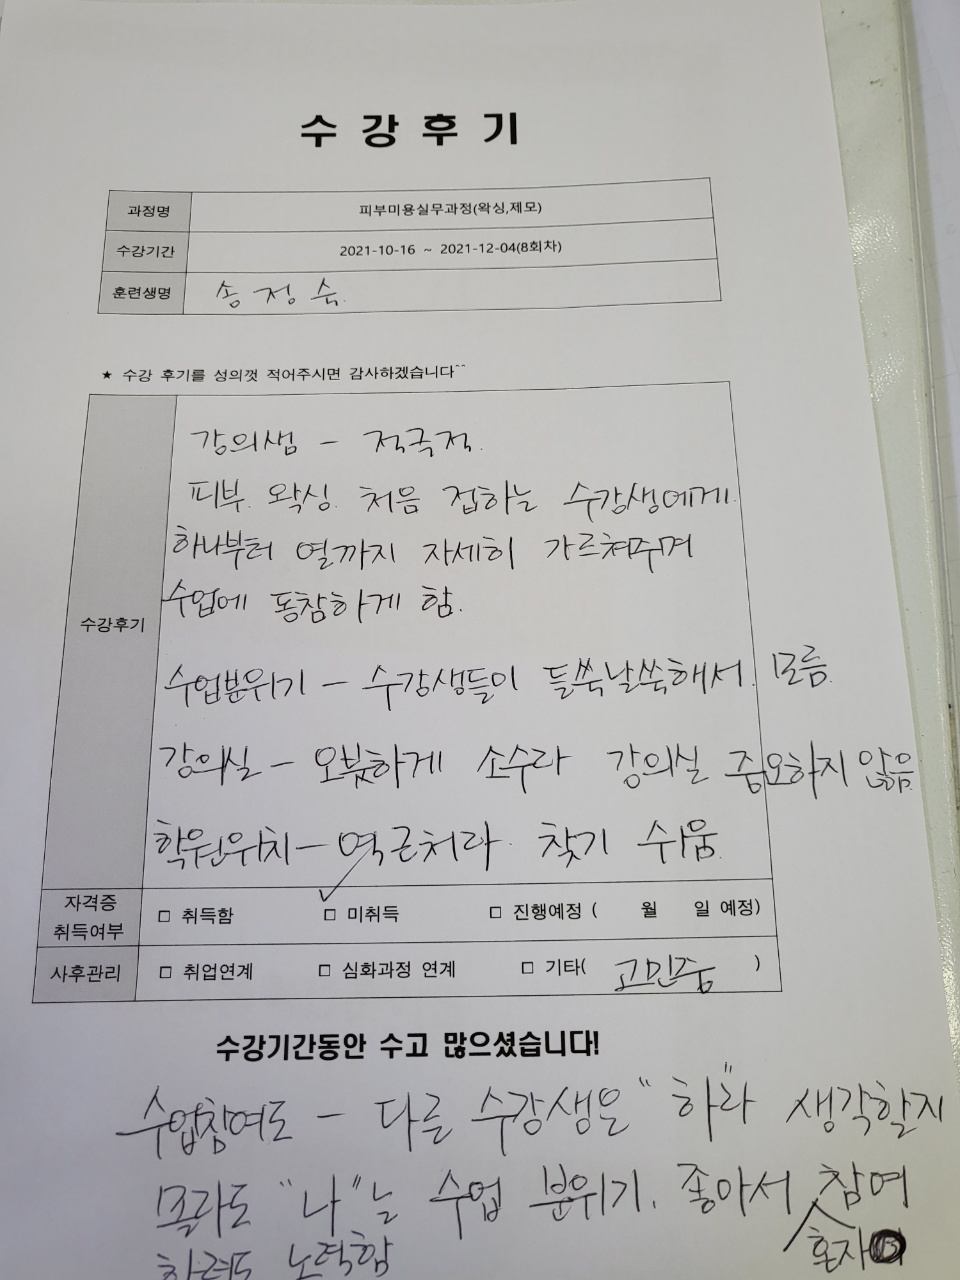 수 강 후 기
과정명 피부미용실무과정(왁싱,제모)
수강기간 2021-10-16 ~ 2021-12-04(8회차)
훈련생명 송 정
★ 수강 후기를 성의껏 적어주시면 감사하겠습니다^^
강의샘 - 적극적.
피부. 왁싱. 처음 접하는 수강생에게.
하나부터 열까지 자세히 가르쳐주며
수업에 동참하게 함.
수강후기
수업분위기 - 수강생들이 들쑥날쑥해서. 모름.
강의실 - 오붓하게 소수라 강의실 중요하지 않음.
학원위치 - 역근처라. 찾기 쉬움.
자격증
취득여부 □ 취득함 ☑ 미취득 □ 진행예정 ( 월 일 예정)
사후관리 □ 취업연계 □ 심화과정 연계 □ 기타( 고민중 )
수강기간동안 수고 많으셨습니다!
수업참여도 - 다른 수강생은 "하"라 생각할지
몰라도 "나"는 수업 분위기. 좋아서 참여
혼자
하려도 노력함